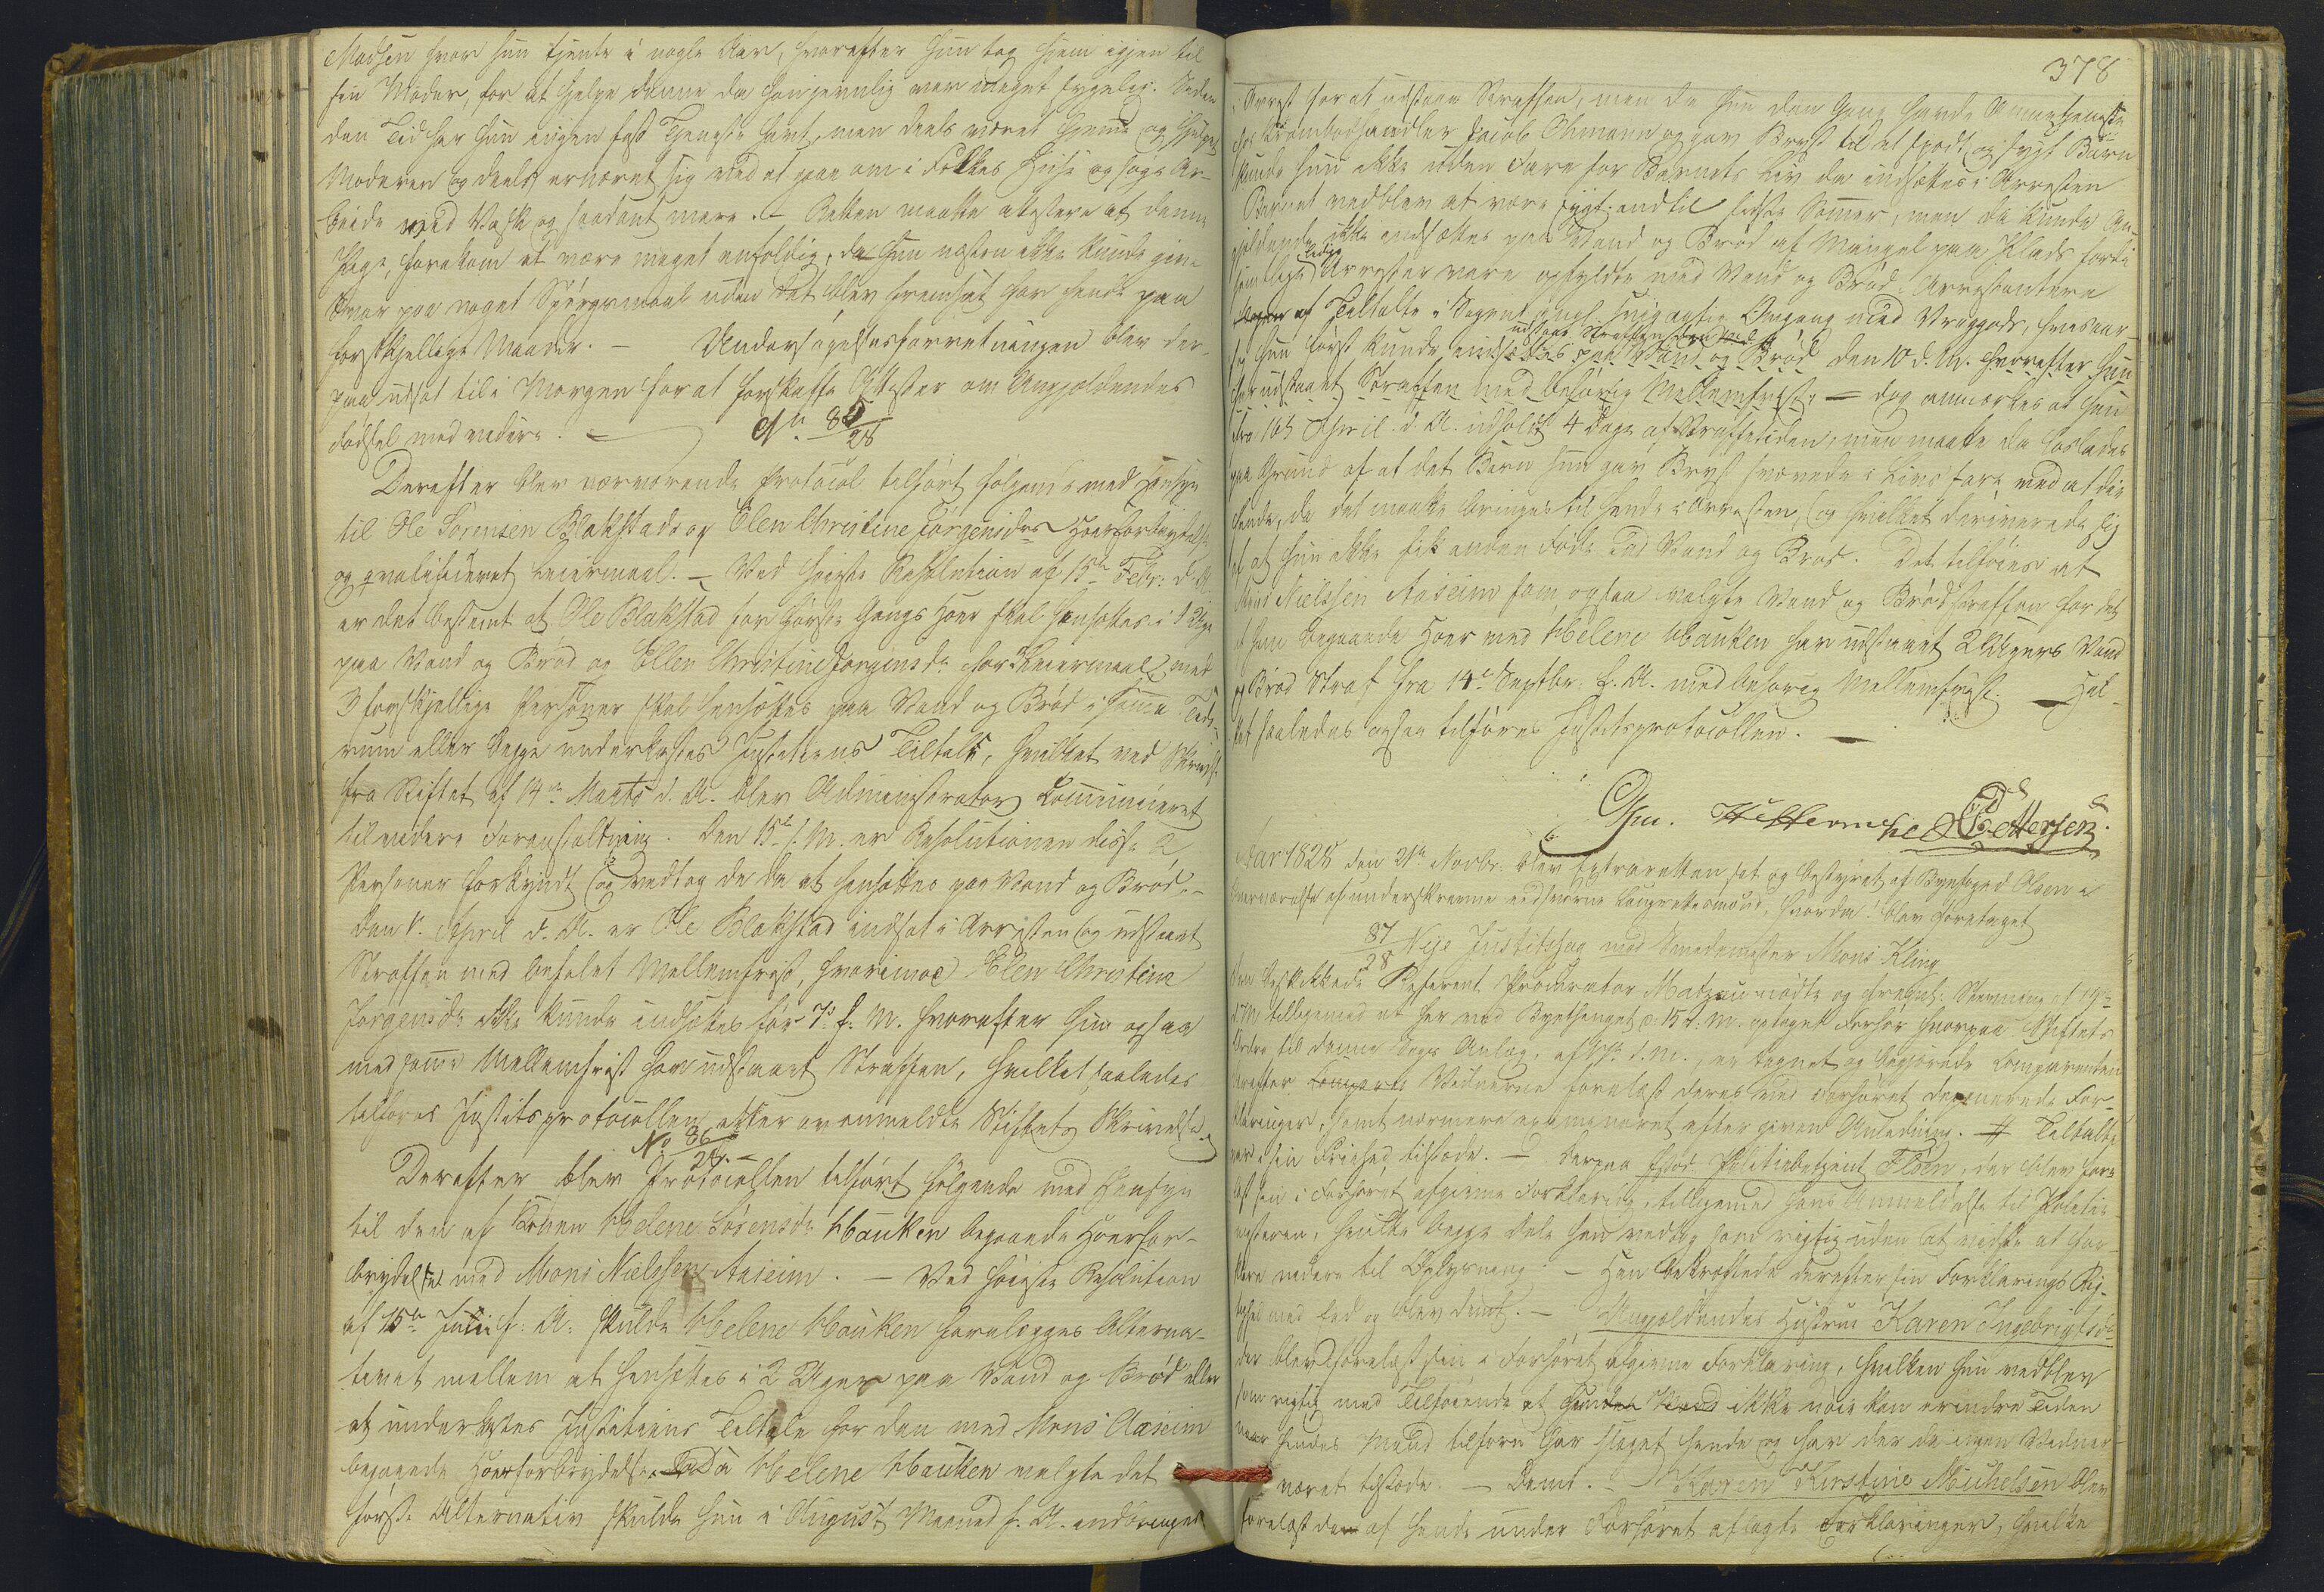 Madsen hvor hun tjente i nogle Aar, hvorefter hun tog hjem igjen til
sin Moder, for at hjelpe denne da hun jevnlig var meget sygelig. Siden
den Tid har hun ingen fast Tjeneste havt, men deels været hjemme og hjulpet
Moderen og deels ernæret sig ved at gaae om i Folkes Huse og søge Ar-
beide med Vask og saadant mere. – Retten maatte attestere at denne
Pige, forekom at være meget enfoldig, da hun næsten ikke kunde give
Svar paa noget Spørgsmaal uden det blev fremsat for hende paa
forskjellige Maader. – Undersøgelsesforretningen blev der-
paa udsat til i Morgen for at forskaffe Attester om Angjældendes
Fødsel med videre. –
No 85/28
Derefter blev nærværende Protocol tilført følgende med Hensyn
til Ole Sørensen Blakstads og Elen Christine Jørgensdr Hoerforbrydelse
og qvalificeret Leiermaal. – Ved høieste Resolution af 15de Febr: d. A.
er det bestemt at Ole Blakstad for første Gangs Hoer skal hensættes i 8 Dage
paa Vand og Brød og Ellen Christine Jørgensdr for Leiermaal med
3 forskjellige Personer skal hensættes paa Vand og Brød i samme Tids-
rum eller begge underkastes Justitiens Tiltale, hvilket ved Skrivelse
fra Stiftet af 14de Marts d. A. blev Administrator communiceret
til videre Foranstaltning. Den 15de s. M. er Resolutionen disse 2
Personer forkyndt og vedtog de da at hensættes paa Vand og Brød. –
Den 1. April d. A. er Ole Blakstad indsat i Arresten og udstaaet
Straffen med befalet Mellemfrist, hvorimod Elen Christine
Jørgensdr ikke kunde indsættes før 7de s. M. hvorefter hun ogsaa
med samme Mellemfrist har udstaaet Straffen, hvilket saaledes
tilføres Justitsprotocollen efter ovenmeldte Stiftets Skrivelse.
No 86/28. –
Derefter blev Protocollen tilført følgende med Hensyn
til den af Konen Helene Sørensdr Hauken begaaede Hoerfor-
brydelse med Mons Nielssen Aaseim. – Ved høieste Resolution
af 15de Juni f: A: skulde Helene Hauken forelægges Alterna-
tivet mellem at hensættes i 2 Uger paa Vand og Brød eller
at underkastes Justitiens Tiltale for den med Mons Aaseim
begaaede Hoerforbrydelse. Da Helene Hauken valgte det
første Alternativ skulde hun i August Maaned f. A. indbringes
378
i Arrest for at udstaae Straffen, men da hun den Gang havde Ammetjeneste
hos Krambodhandler Jacob Ohmann og gav Bryst til et spædt og sygt Barn
kunde hun ikke uden Fare for Barnets Liv da indsættes i Arresten
Barnet vedblev at være sygt indtil sidste Sommer, men da kunde An-
gjældende ikke indsættes paa Vand og Brød af Mangel paa Plads fordi
ledige
Arrester vare opfyldte med Vand og Brød Arrestantere
af Tiltalte i Sagen ang: svigagtig Omgang med Vraggods, hvesaar-
udstaae Straffen
sag hun først kunde indsættes paa Vand og Brød den 10 d. M. hvorefter hun
har udstaaet Straffen med behørig Mellemfrist. – dog anmærkes at hun
fra 16de April d. A. udholdt 4 Dage af Straffetiden, men maatte da loslades
paa Grund af at det Barn hun gav Bryst svævede i Livs fare ved at die
hende, da det maatte bringes til hende i Arresten, og hvilket deriverede sig
af at hun ikke fik anden Føde end Vand og Brød. Det tilføies at
Mons Nielssen Aaseim som ogsaa valgte Vand og Brødstraffen for det
af ham begaaede Hoer med Helene Hauken har udstaaet 2 Ugers Vand
og Brød Straf fra 14de Septbr. f. A. med behørig Mellemfrist. – Hvil-
ket saaledes ogsaa tilføres Justitsprotocollen. –
Olsen. Pettersen.
Aar 1828 den 21de Novbr. blev Extraretten sat og bestyret af Byefoged Olsen i
Overværelse af underskrevne eedsvorne Laugrettesmænd, hvorda blev foretaget
87/28 Nye Justitssag mod Smedemester Mons Kling
Den beskikkede Referent Procurator Matzau mødte og fremst: Stævning af 19de
d. M. tilligemed et her ved Byethinget d: 15 d: M. optaget Forhør hvorpaa Stiftets
Ordre til denne Sags Anlæg, af d. M., er tegnet og begjærede Comparenten
derefter Vidnerne forelæst deres ved Forhøret deponerede For-
klaringer, samt nærmere examineret efter given Anledning. # Tiltalte
var i sin Frihed tilstæde. – Derpaa frstod Politiebetjent Floen, der blev fore-
læst sin i Forhøret afgivne Forklaring, tilligemed hans Anmeldelse til Politie-
mesteren, hvilke begge Dele han vedtog som rigtig uden at vidste at for-
klare videre til Oplysning. – Han bekræftede derefter sin Forklarings Rig-
tighed med Eed og blev demt. – Angjældendes Hustrue Karen Ingebrigtsdr
der blev forelæst sin i Forhøret afgivne Forklaring, hvilken hun vedblev
som rigtig med Tilføiende at hun ikke nøie kan erindre Tiden
naar hendes Mand tilforn har slaget hende og har der da ingen Vidner
været tilstæde. – Demt. – Karen Kirstine Michelsen blev
forelæst den af hende under Forhøret aflagte Forklaringer, hvilke